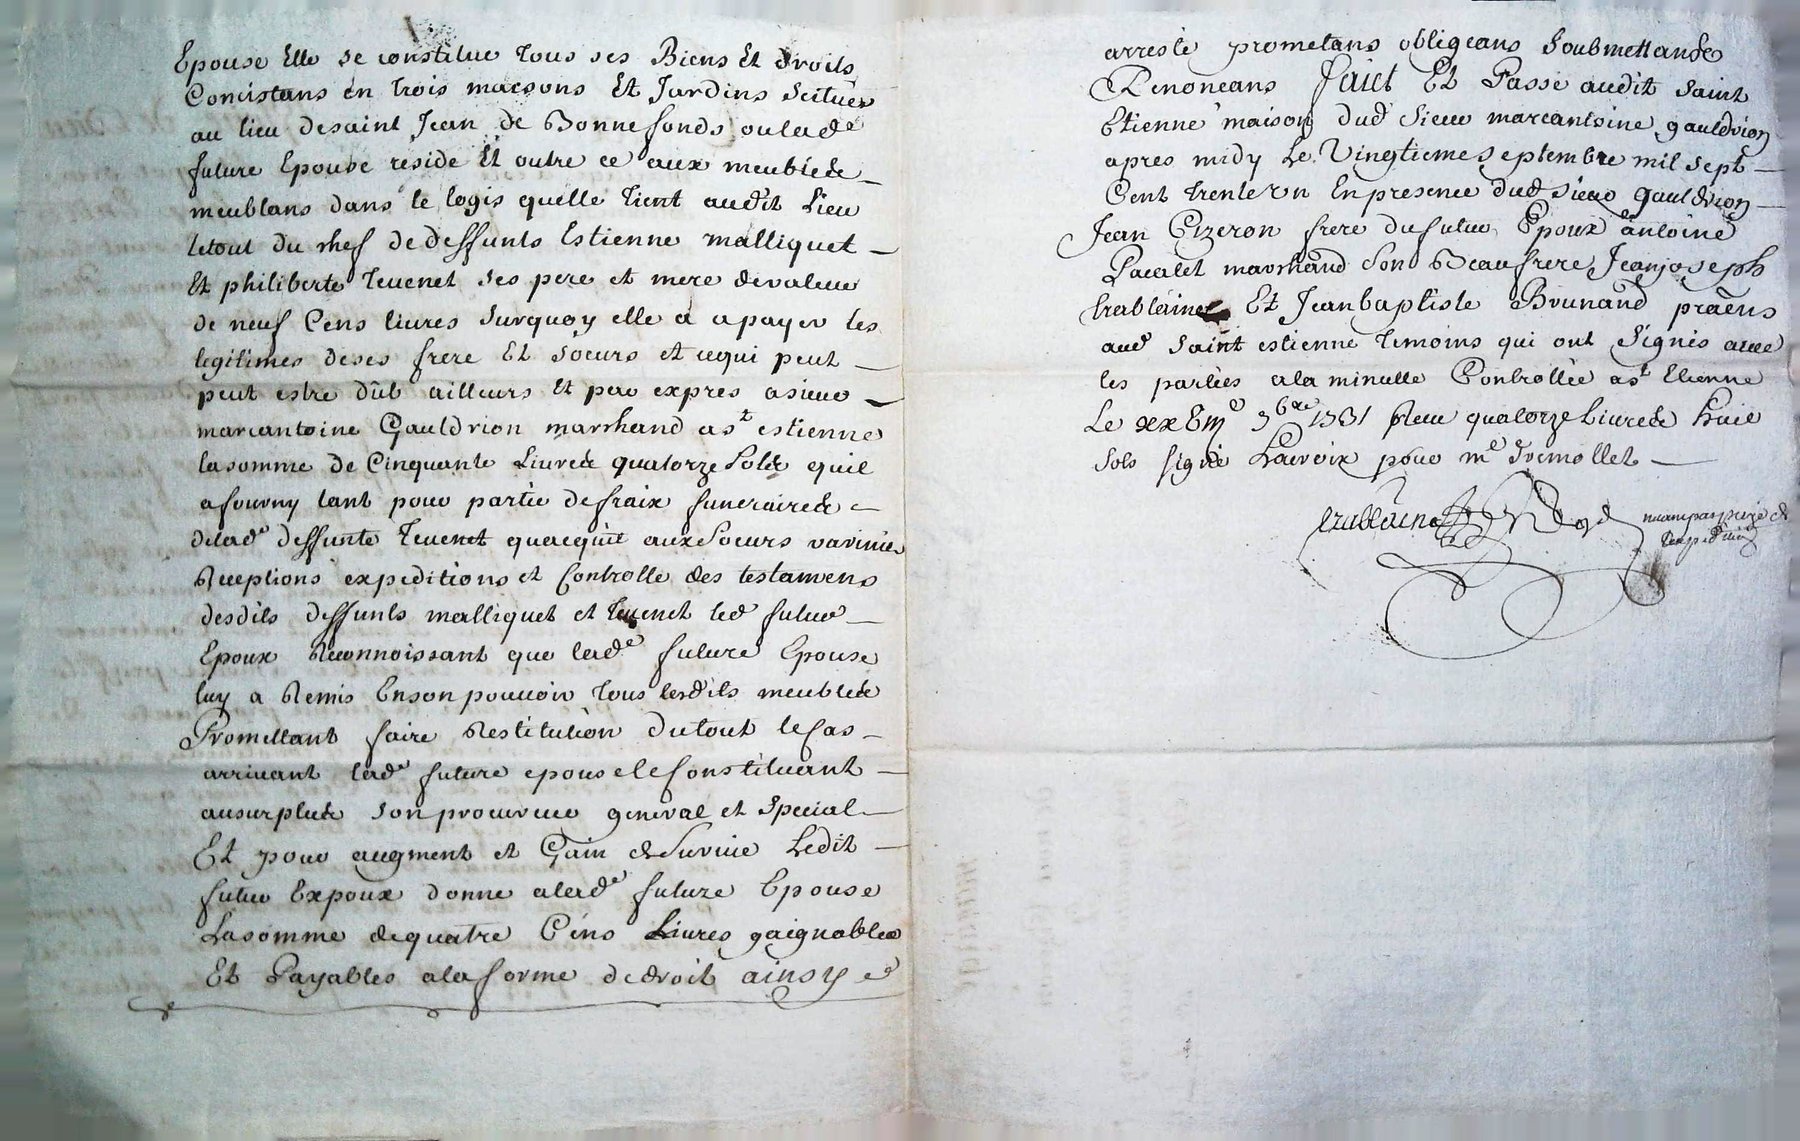 Epouse Elle se constitue tous ses Biens Et droits
Concistans en trois maisons Et Jardins Scitués
au lieu de saint Jean de Bonnefonds ou lade
future Epouse reside Et outre ce aux meubles
meublans dans le logis quelle tient audit Lieu
letout du chef de deffunts Estienne malliquet
Et philiberte Teuenet ses pere et mere devaleur
de neuf Cens liures surquoy elle a apayer les
legitimes deses frere Et soeurs et cequi peut
peut estre dûb ailleurs Et par expres asieur
marcantoine Gauldrion marchand a st estienne
la somme de Cinquante Liures quatorze Sols quil
a fourny tant pour partie de fraix funeraires
delade deffunte Teuenet quacquit aux Soeurs
Receptions expeditions et Controlle des testamens
desdits deffunts malliquet et Teuenet led futur
Epoux Reconnoissant que lade future Epouse
luy a Remis Enson pouuoir tous lesdits meubles
Promettant faire Restitution dutout le Cas
arriuant lade future epouse le Constituant
ausurplus son procureur general et special
Et pour augment et Gain de Suruie Ledit
futur Expoux donne alade future Epouse
La somme de quatre Cens Liures gaignables
Et Payables ala forme de droit ainsy
arresté prometans obligeans Soubmettans
Renonceans Faict Et Passé audit Saint
Etienne maison dud Sieur marcantoine gauldrion
apres midy Le Vingtieme Septembre mil sept
Cent trente Un En presence dud Sieur gauldrion
Jean Cizeron frere du futur Epoux antoine
Pacalet marchand Son Beaufrere Jean joseph
trablaine Et Jean baptiste Brunand
aud Saint estienne temoins qui ont Signés auec
les parties ala minutte Controllée a st Etienne
Le xxEme 7bre 1731 Receu quatorze Liures huit
Sols signé Lacroix pour me tremollet
trablaine